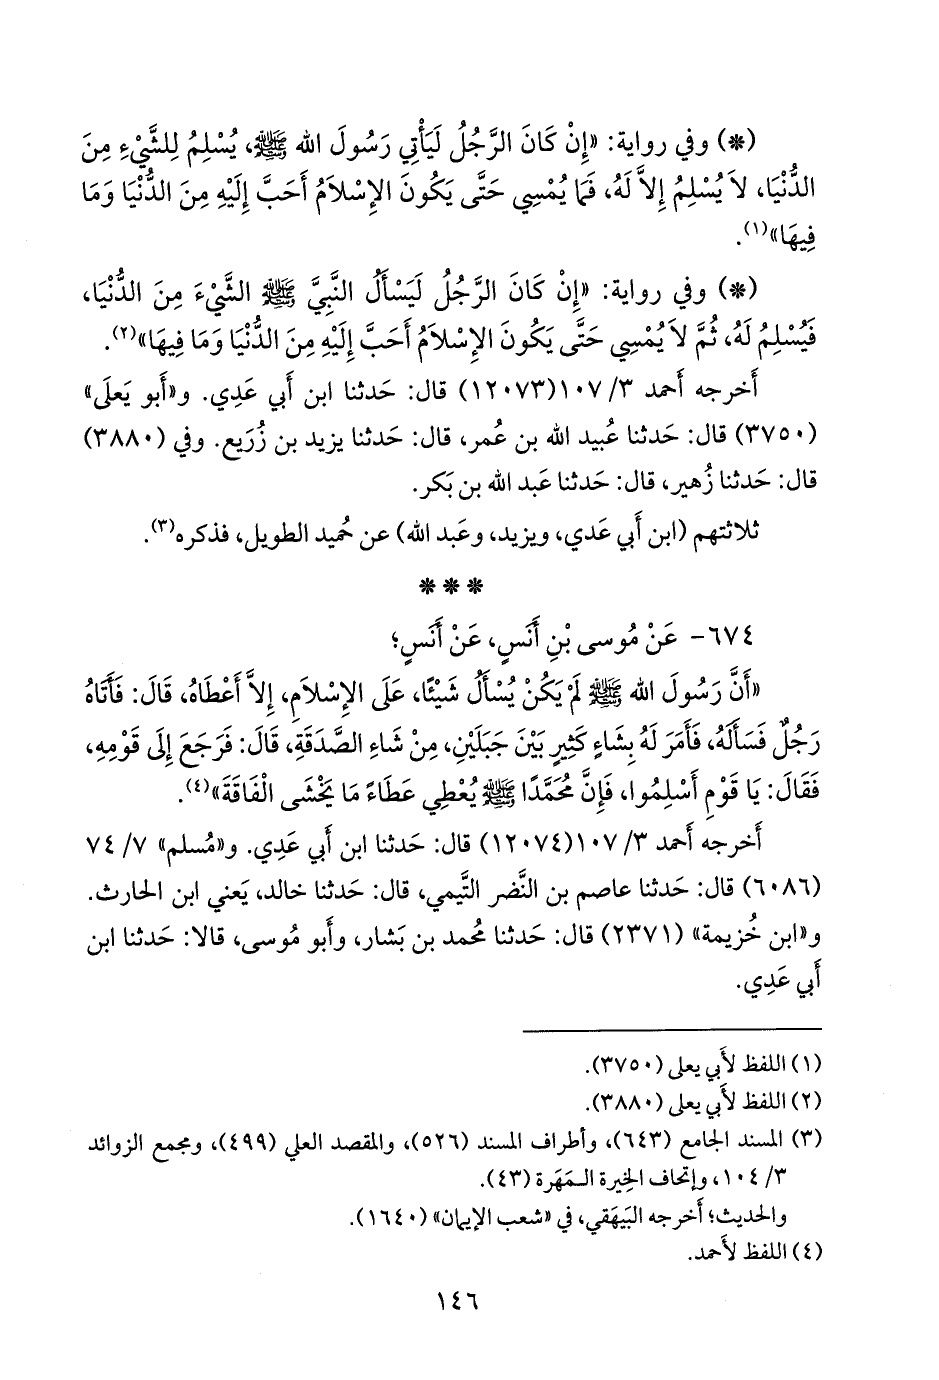 (*) وفي رواية: «إِنْ كَانَ الرَّجُلُ لَيَأْتِي رَسُولَ الله ﷺ، يُسْلِمُ لِلشَّيْءِ مِنَ
الدُّنْيَا، لاَ يُسْلِمُ إِلاَّ لَهُ، فَمَا يُمْسِي حَتَّى يَكُونَ الإِسْلاَمُ أَحَبَّ إِلَيْهِ مِنَ الدُّنْيَا وَمَا
فِيهَا»(١).
(*) وفي رواية: «إِنْ كَانَ الرَّجُلُ لَيَسْأَلُ النَّبِيَّ ﷺ الشَّيْءَ مِنَ الدُّنْيَا،
فَيُسْلِمُ لَهُ، ثُمَّ لاَ يُمْسِي حَتَّى يَكُونَ الإِسْلاَمُ أَحَبَّ إِلَيْهِ مِنَ الدُّنْيَا وَمَا فِيهَا»(٢).
أَخرجه أَحمد ٣/ ١٠٧(١٢٠٧٣) قال: حَدثنا ابن أَبي عَدِي. و«أَبو يَعلَى»
(٣٧٥٠) قال: حَدثنا عُبيد الله بن عُمر، قال: حَدثنا يزيد بن زُرَيع. وفي (٣٨٨٠)
قال: حَدثنا زُهير، قال: حَدثنا عَبد الله بن بَكر.
ثلاثتهم (ابن أَبي عَدي، ويزيد، وعَبد الله) عن حُميد الطويل، فذكره(٣).
* * *
٦٧٤- عَنْ مُوسى بْنِ أَنَسٍ، عَنْ أَنَسٍ؛
«أَنَّ رَسُولَ الله ﷺ لَمْ يَكُنْ يُسْأَلُ شَيْئًا، عَلَى الإِسْلاَمِ، إِلاَّ أَعْطَاهُ، قَالَ: فَأَتَاهُ
رَجُلٌ فَسَأَلَهُ، فَأَمَرَ لَهُ بِشَاءٍ كَثِيرٍ بَيْنَ جَبَلَيْنِ، مِنْ شَاءِ الصَّدَقَةِ، قَالَ: فَرَجَعَ إِلَى قَوْمِهِ،
فَقَالَ: يَا قَوْمِ أَسْلِمُوا، فَإِنَّ مُحَمَّدًا ﷺ يُعْطِي عَطَاءً مَا يَخْشَى الْفَاقَةَ»(٤).
أَخرجه أَحمد ٣/ ١٠٧(١٢٠٧٤) قال: حَدثنا ابن أَبي عَدِي. و«مُسلم» ٧/ ٧٤
(٦٠٨٦) قال: حَدثنا عاصم بن النَّضر التَّيمي، قال: حَدثنا خالد، يَعني ابن الحارث.
و«ابن خُزيمة» (٢٣٧١) قال: حَدثنا مُحمد بن بَشار، وأَبو مُوسى، قالا: حَدثنا ابن
أَبي عَدِي.
(١) اللفظ لأَبي يعلى (٣٧٥٠).
(٢) اللفظ لأَبي يعلى (٣٨٨٠).
(٣) المسند الجامع (٦٤٣)، وأطراف المسند (٥٢٦)، والمقصد العلي (٤٩٩)، ومجمع الزوائد
٣/ ١٠٤، وإتحاف الخِيرة الـمَهَرة (٤٣).
والحديث؛ أَخرجه البَيهَقي، في «شعب الإيمان» (١٦٤٠).
(٤) اللفظ لأَحمد.
١٤٦